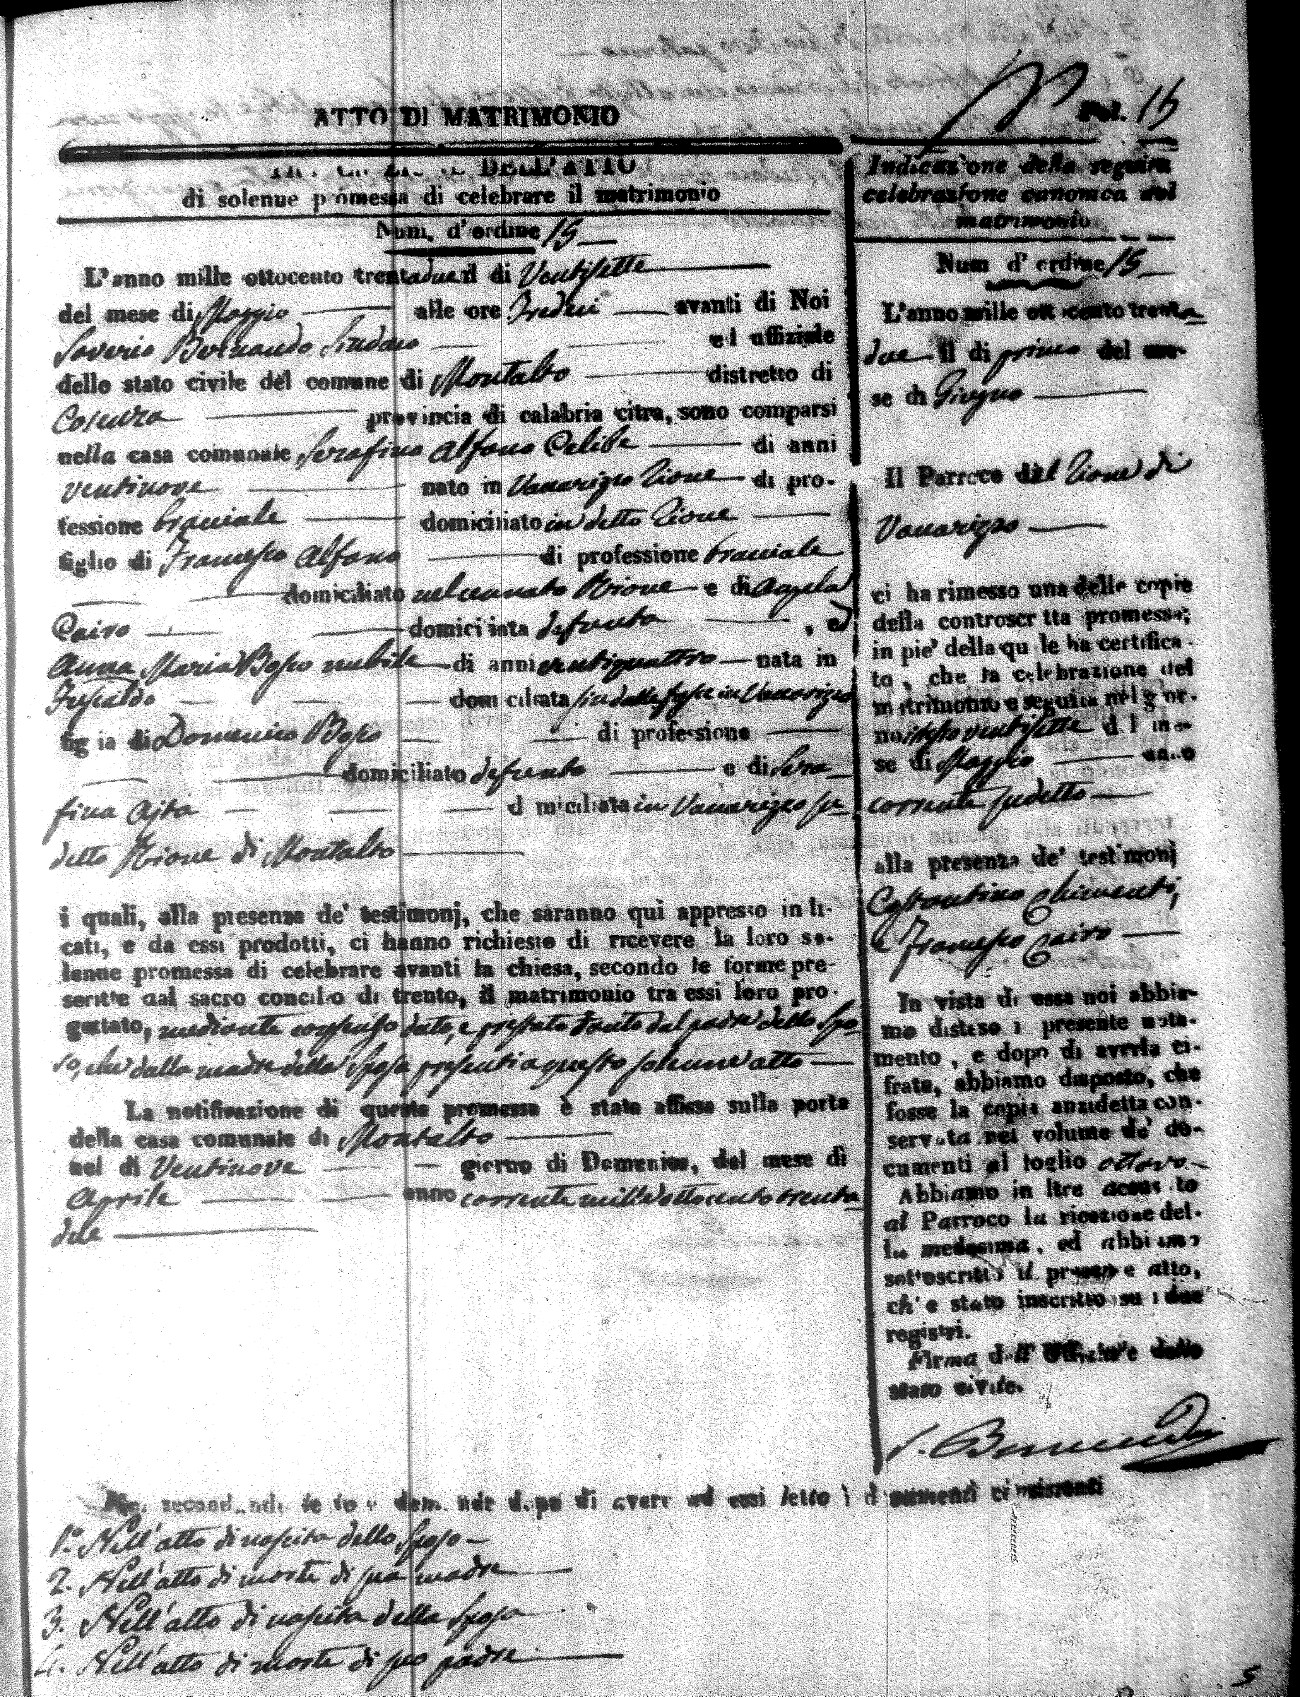 Fol. 15
ATTO DI MATRIMONIO
DELL'ATTO
di solenne promessa di celebrare il matrimonio
Num. d'ordine 15
L'anno mille ottocento trentadue il di Ventisette
del mese di Maggio alle ore Tredici avanti di Noi
Saverio Bernaudo Sindaco ed uffiziale
dello stato civile del comune di Montalto distretto di
Cosenza provincia di calabria citra, sono comparsi
nella casa comunale Serafino Alfano Celibe di anni
ventinove nato in Vaccarizzo Rione di pro-
fessione bracciale domiciliato in detto Rione
figlio di Francesco Alfano di professione bracciale
domiciliato nel cennato Rione e di Angela
Cairo domiciliata defunta , ed
Anna Maria Bosco nubile di anni ventiquattro nata in
domiciliata sin dalle fasce in Vaccarizzo
figlia di Domenico Bosco di professione
domiciliato defunto e di Sera
fina Ajta domiciliata in Vaccarizzo su-
detto Rione di Montalto
i quali, alla presenza de' testimonj, che saranno qui appresso indi-
cati, e da essi prodotti, ci hanno richiesto di ricevere la loro so-
lenne promessa di celebrare avanti la chiesa, secondo le forme pre-
scritte dal sacro concilio di trento, il matrimonio tra essi loro pro-
gettato, mediante consenso dato, e prestato tanto dal padre dello Spo
so, che dalla madre della Sposa presenti a questo solenne atto
La notificazione di questa promessa è stata affissa sulla porta
della casa comunale di Montalto
nel di Ventinove giorno di Domenica, del mese di
Aprile anno corrente milleottocento trenta
due
Indicazione della seguita
celebrazione canonica del
matrimonio
Num d'ordine 15
L'anno mille ottocento trenta
due il di primo del me-
se di Giugno
Il Parroco del Rione di
Vaccarizzo
ci ha rimesso una delle copie
della controscritta promessa;
in pie' della quale ha certifica-
to, che la celebrazione del
matrimonio e seguita nel gior-
no istesso ventisette del me-
se di Maggio anno
corrente sudetto
alla presenza de' testimonj
Costantino Chimenti,
e Francesco Cairo
In vista di essa noi abbia-
mo disteso il presente nota-
mento, e dopo di averla ci-
frata, abbiamo disposto, che
fosse la copia anzidetta con-
servata nel volume de' do-
cumenti al foglio ottavo
Abbiamo in oltre accusato
al Parroco la ricezione del-
la medesima, ed abbiamo
sottoscritto il presente atto,
ch'e stato inscritto su i due
registri.
Firma dell'Uffiziale dello
stato civile.
S. Bernaudo
Noi secondando le loro domande dopo di avere ad essi letto i documenti consistenti
1.° Nell'atto di nascita dello Sposo
2. Nell'atto di morte di sua madre
3. Nell'atto di nascita della Sposa
4. Nell'atto di morte di suo padre